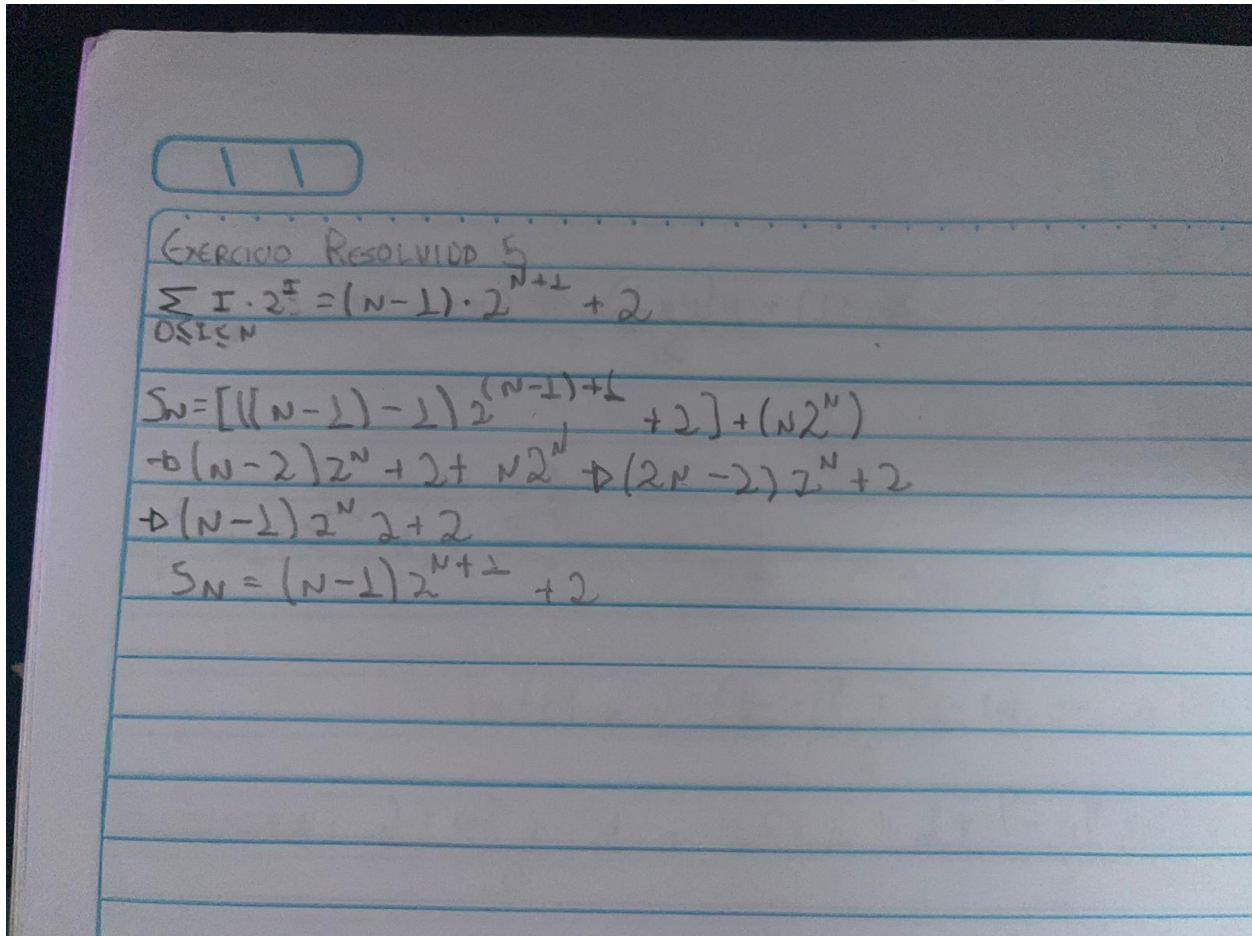 EXERCICIO RESOLVIDO 5
∑ I · 2^I = (N-1) · 2^(N+1) + 2
0≤I≤N
SN = [((N-1)-1) 2^((N-1)+1) + 2] + (N2^N)
→ (N-2) 2^N + 2 + N2^N → (2N-2) 2^N + 2
→ (N-1) 2^N 2 + 2
SN = (N-1) 2^(N+1) + 2